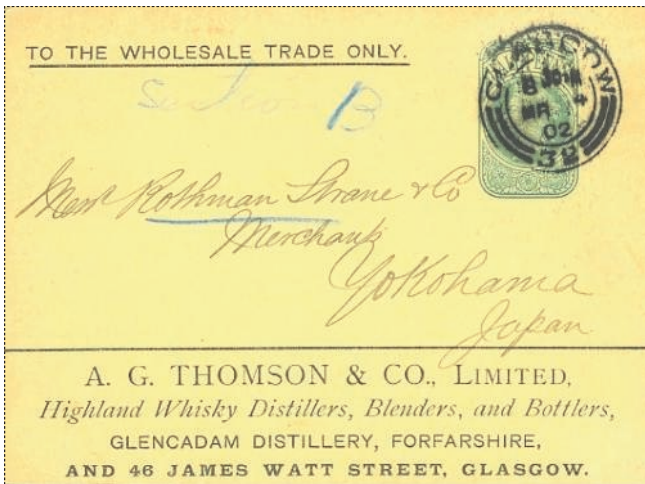 TO THE WHOLESALE TRADE ONLY.
Section B
GLASGOW
8 30 AM
MR 4
02
32
Messrs Rothman Strane & Co
Merchants
Yokohama
Japan
A. G. THOMSON & CO., LIMITED,
Highland Whisky Distillers, Blenders, and Bottlers,
GLENCADAM DISTILLERY, FORFARSHIRE,
AND 46 JAMES WATT STREET, GLASGOW.